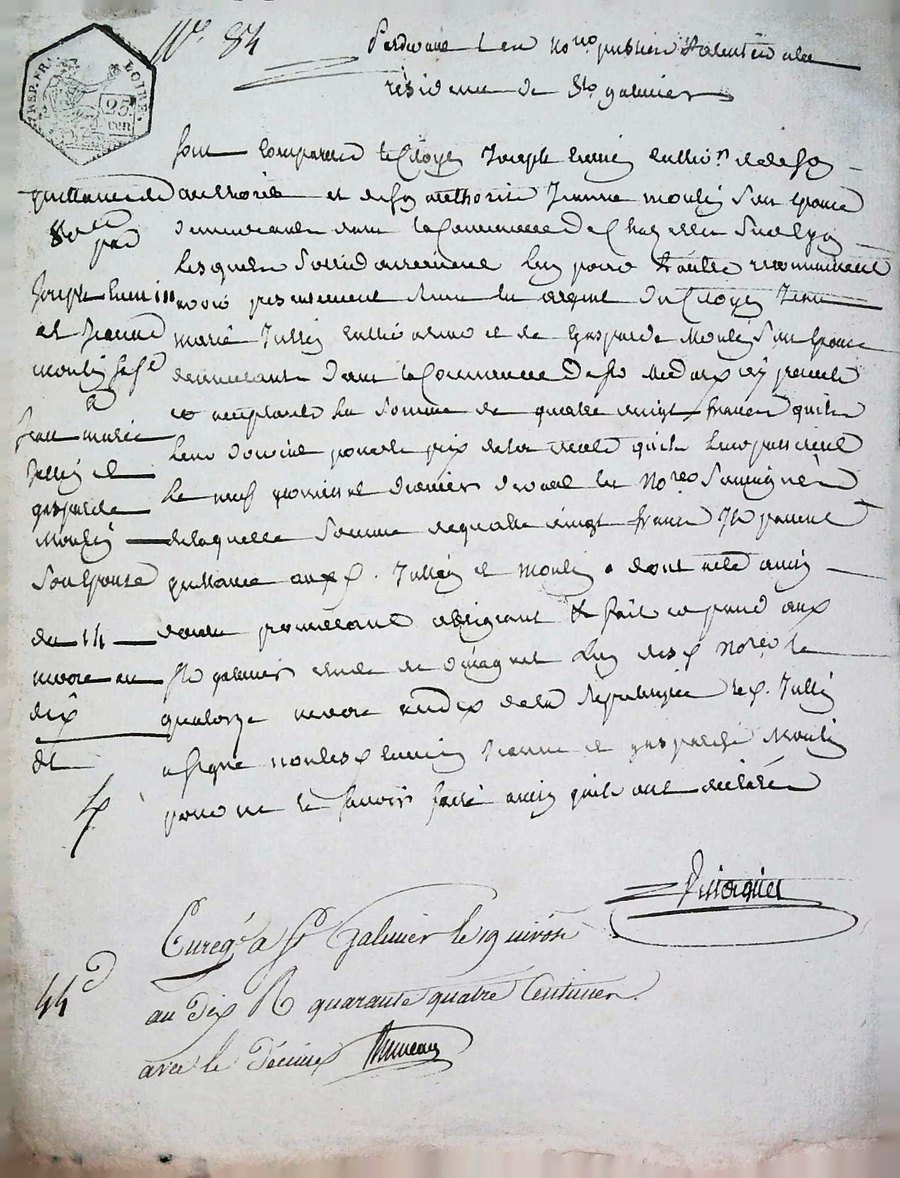 N° 84
Pardevant les no.res publics à la
résidence de St. galmier
REP. FRA. LOIRE
25
cen
sont comparus le Citoyen Joseph cultiv.r et de son
authorité et de son authorité Jeanne moulin son épouse
demeurants dans la Commune de Chazelles sur lyon
Lesquels solidairement l'un pour l'autre reconnaissent
avoir presentement reçu en argent du Citoyen Jean
marie Jullien cultivateur et de gasparde Moulin son épouse
demeurants dans la Commune de St. Medard icy présents
et acceptants la somme de quatre vingt francs qu'ils
leur doivent pour le prix de la vente qu'ils leur passèrent
le neuf dernier devant les No.res soussignés
de laquelle somme de quatre vingt francs Ils passent
quittance auxd. Jullien et moulin dont acte ainsi
voulu promettant obligeant &c fait et passé aux
St. galmier étude de l'un desd. No.res le
quatorze nivose an dix de la République led. Jullien
a signé non lesd. Jeanne et gasparde Moulin
pour ne le savoir faire ainsi qu'ils ont déclaré
quittance de
80 f.
par
Joseph
et Jeanne
moulin sa f.e
à
Jean marie
Jullien et
gasparde
Moulin
son épouse
du 14
nivose an
dix
Enreg.é à St. Galmier le 19 nivôse
an Dix R quarante quatre Centimes
avec le Décime
44 d